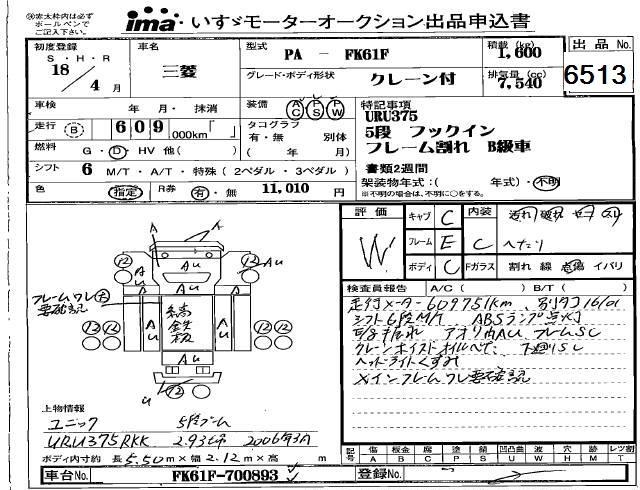 ㊟赤太枠内は必ず
ボールペンで
ご記入下さい。
ima いすゞモーターオークション出品申込書
初度登録 車名 型式 PA － FK61F 積載 (kg) 1,600 出品 No. 6513
S・H・R 18 4 月 三菱 グレード・ボディ形状 クレーン付 排気量 (cc) 7,540
車検 年 月・抹消 装備 AC PS PW 特記事項
URU375
走行 B 609,000km 「 」 タコグラフ 5段 フックイン
有・無 別体 フレーム割れ B級車
燃料 G・D・HV 他( ) ( 年 月) 書類2週間
シフト 6 M/T・A/T・特殊 (2ペダル・3ペダル) 架装物年式:( 年式)・不明
※不明の場合は、不明に○をする。
色 指定 R券 有・無 11,010 円
評価 W キャブ C 内装 C 汚れ 破れ
フレーム E ヘたり
ボディ C Fガラス 割れ 線 点傷 イバリ
検査員報告 A/C ( ) B/T ( )
走行メーター609751km
シフト6段M/T ABSランプ点灯
アオリ内AU フレームSC
クレーンホイストオイルベて 下廻りSC
ヘッドライトくすみ
メインフレームワレ要確認
フレームワレ大
要確認
A
Au
12
Au Au
縞鉄板
A
u
A
u
A
u
12 12 12 12
Au
12
u
上物情報
ユニック 5段ブーム
URU375RKK 2.93t吊 2006年3月
ボディ内寸約 長 5.50 m×幅 2.12 m×高 m
記号 傷 A 板金 B 腐 C 塗 P 錆 S 凹凸曲 U 波 W 穴 H 跡 M レツ割 T
車台No. FK61F-700893 登録No.